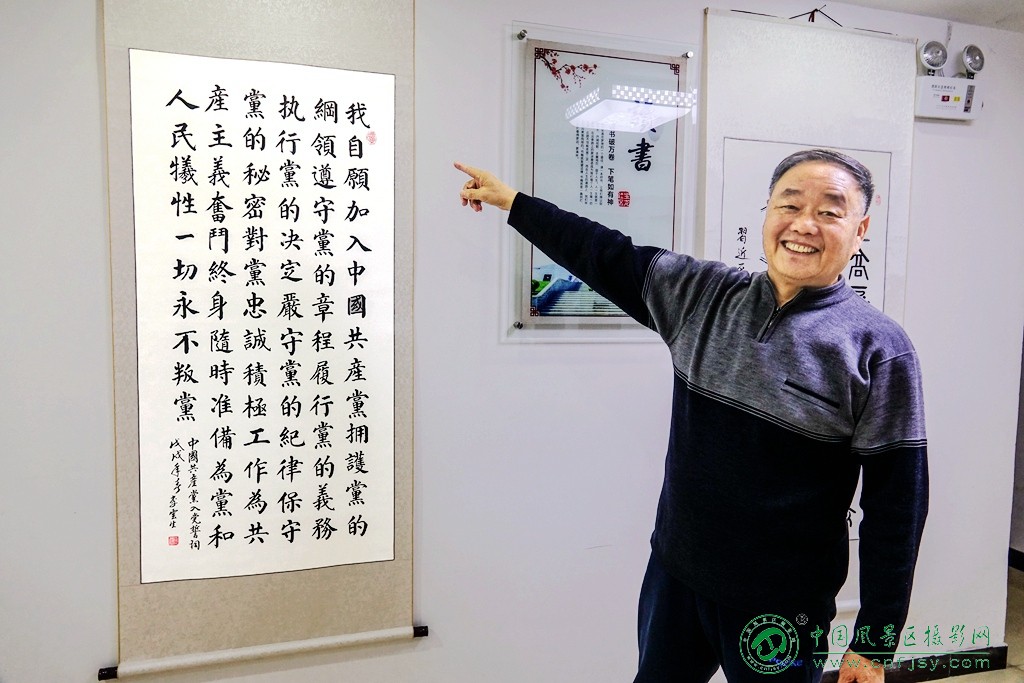 我自願加入中國共産黨拥護黨的
綱領遵守黨的章程履行黨的義務
执行黨的决定嚴守黨的紀律保守
黨的秘密對黨忠誠積極工作為共
産主義奮鬥終身隨時准備為黨和
人民犠性一切永不叛黨
中國共産黨入党誓詞
戊戌年春李雲生
書
书破万卷 下笔如有神
習近
中国風景区摄影网
www.cnfjsy.com